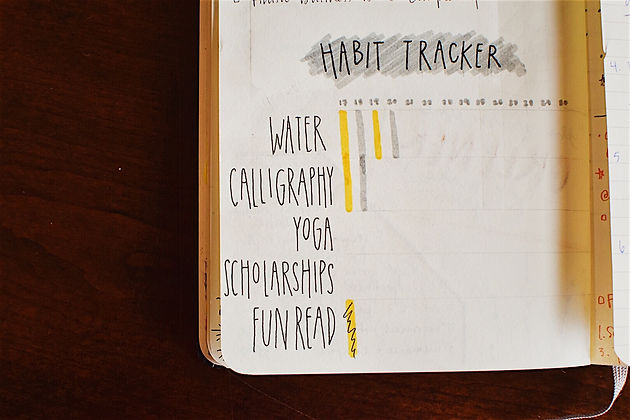 HABIT TRACKER
17 18 19 20 21 22 23 24 25 26 27 28 29 30
WATER
CALLIGRAPHY
YOGA
SCHOLARSHIPS
FUN READ
4.
5
6
3.